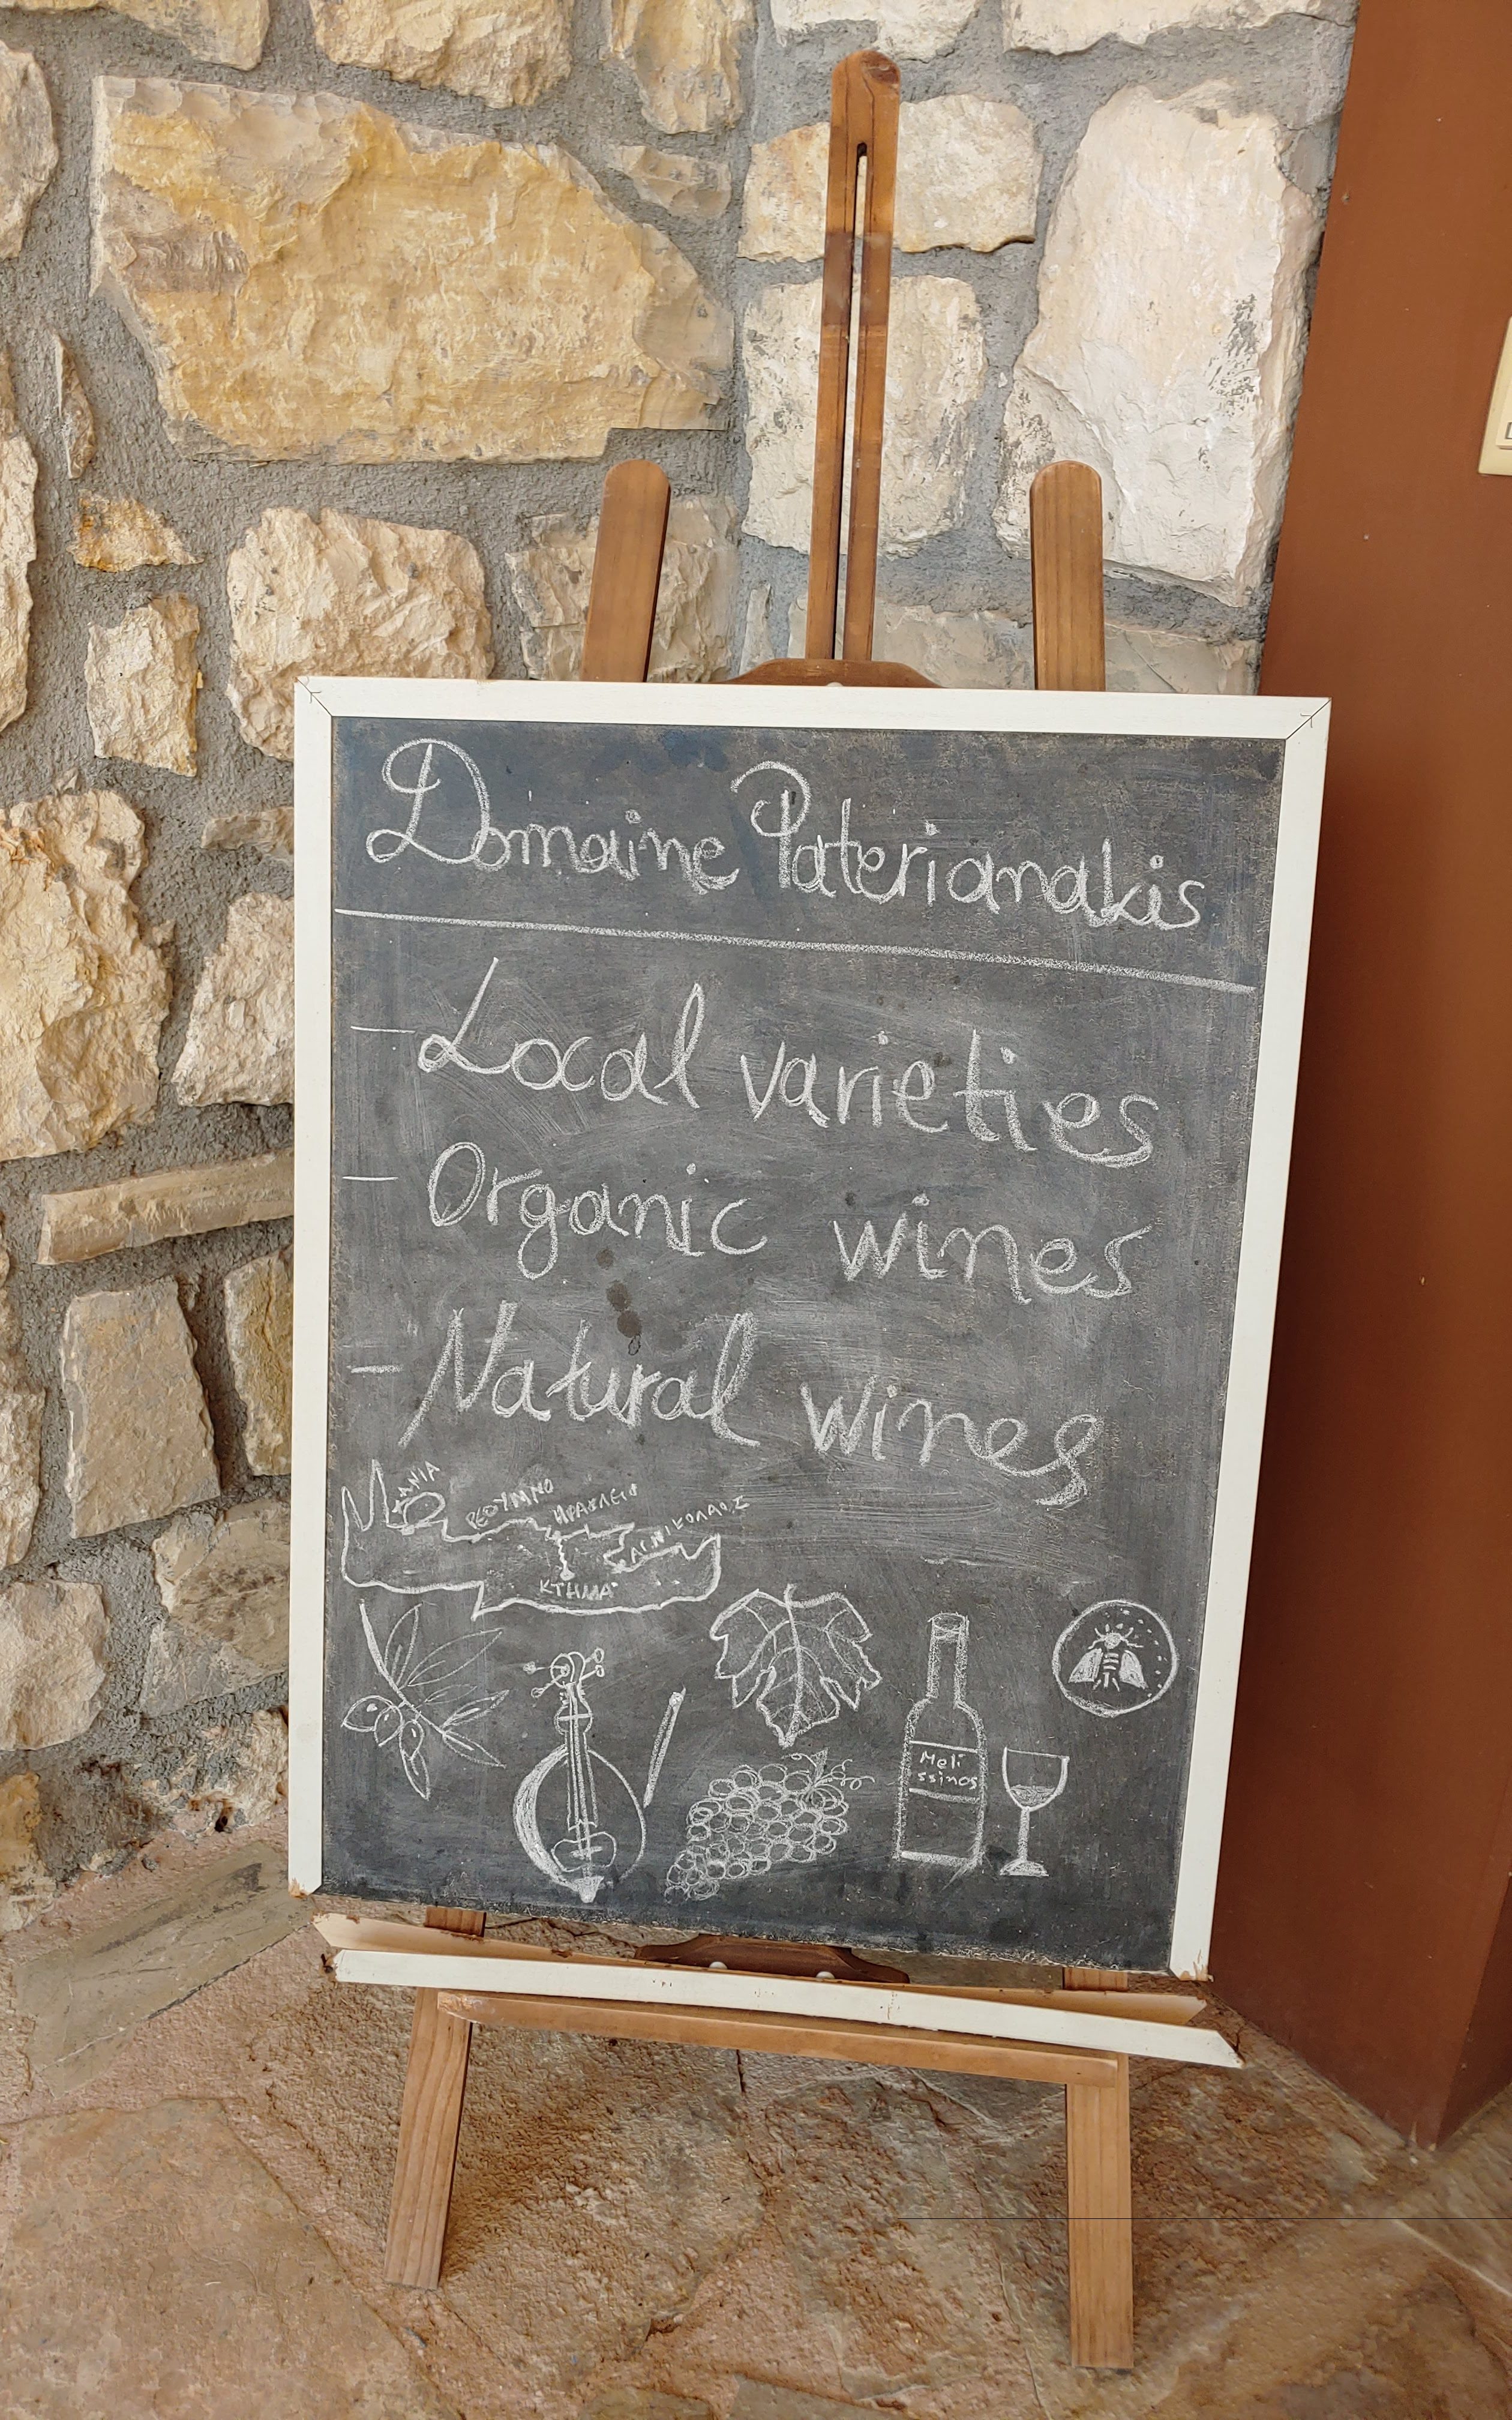 Domaine Paterianakis
- Local varieties
- Organic wines
- Natural wines
ΧΑΝΙΑ
ΡΕΘΥΜΝΟ
ΗΡΑΚΛΕΙΟ
ΑΓ. ΝΙΚΟΛΑΟΣ
ΚΤΗΜΑ
Meli
ssinos